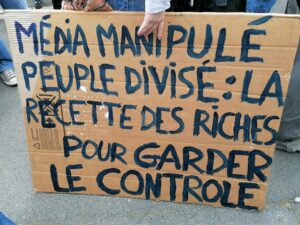 MÉDIA MANIPULÉ
PEUPLE DIVISÉ : LA
RECETTE DES RICHES
POUR GARDER
LE CONTROLE